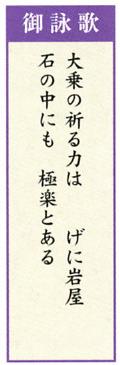 御詠歌
大乗の祈る力は　げに岩屋
石の中にも　極楽とある